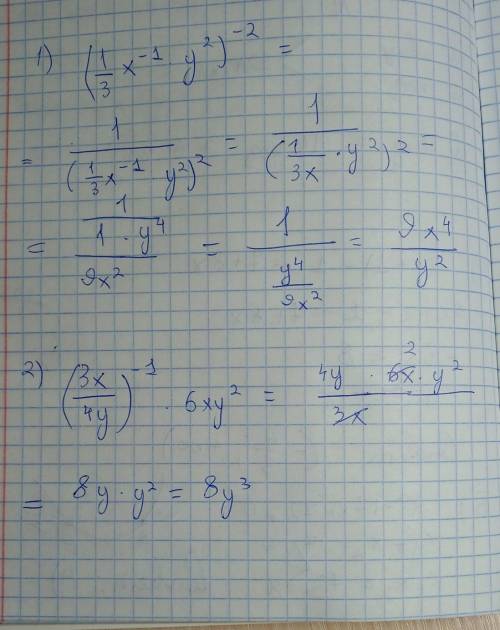 1) (1/3 x^-1 · y^2)^-2 =
= 1/((1/3 x^-1 y^2)^2) = 1/((1/(3x) · y^2)^2) =
= 1/((1 · y^4)/(9x^2)) = 1/(y^4/(9x^2)) = 9x^4/y^2
2) (3x/4y)^-1 · 6xy^2 = (4y · 6x · y^2)/(3x) 2
= 8y · y^2 = 8y^3